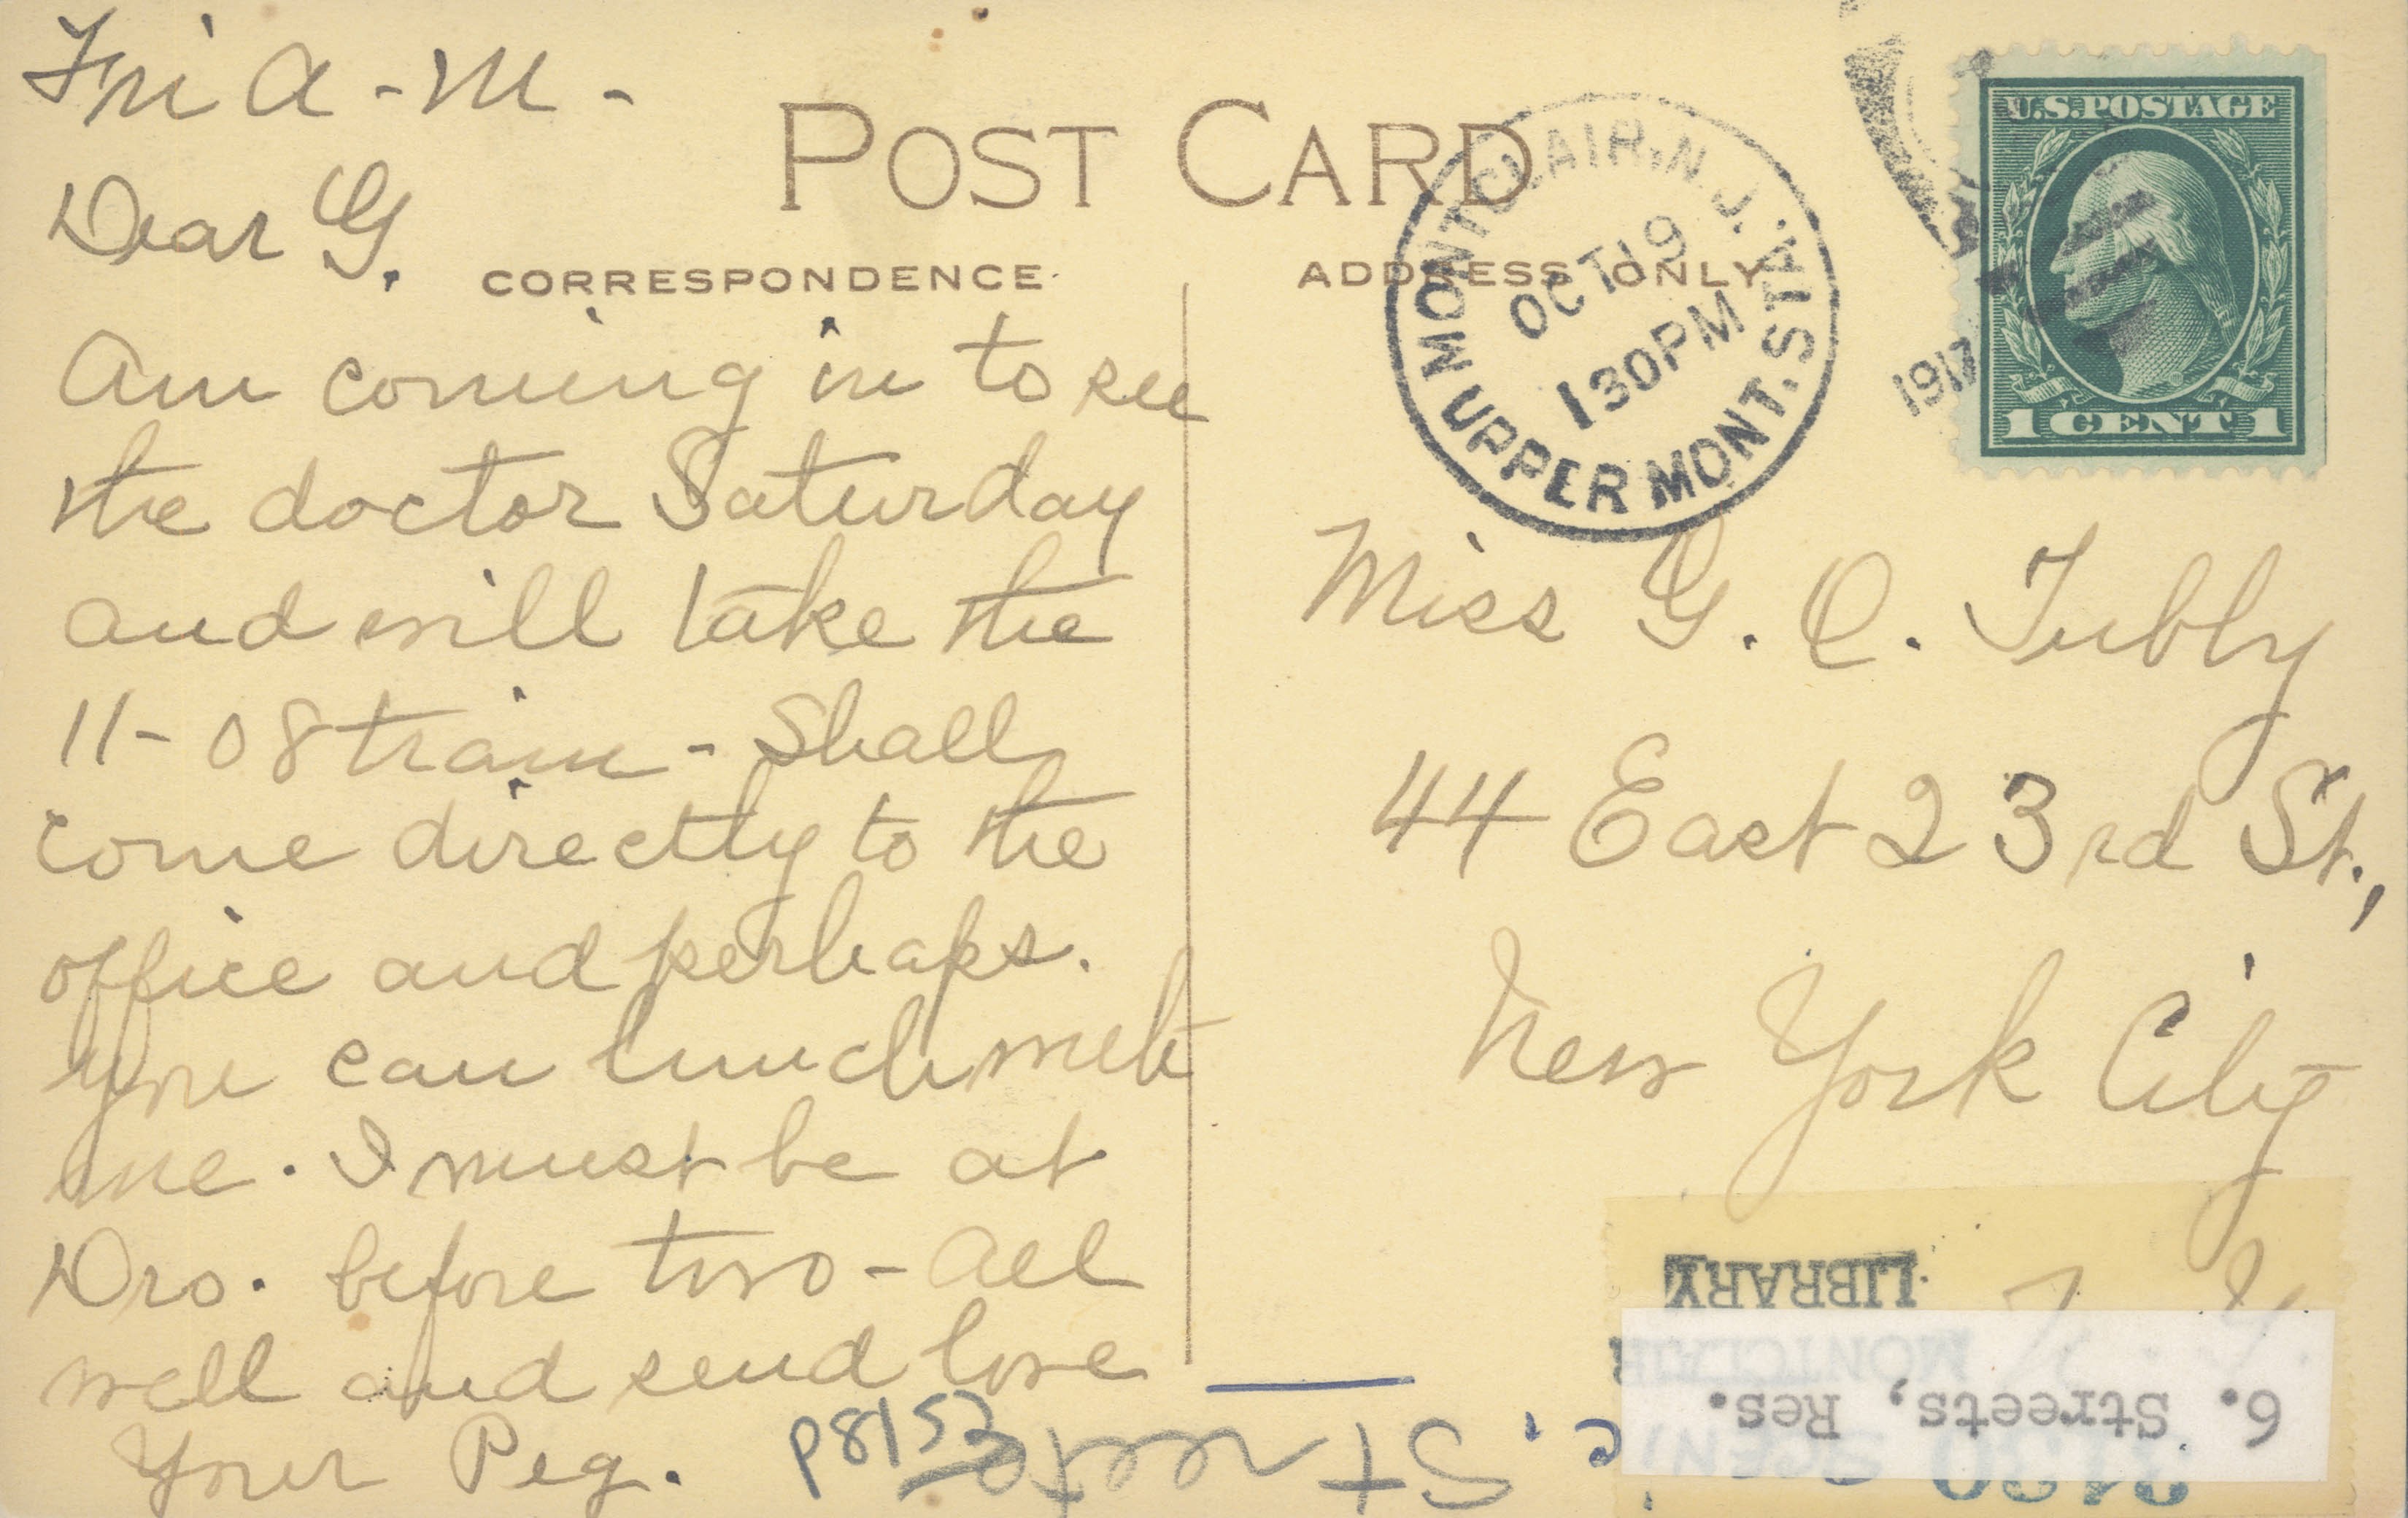 Fri A-M-
Dear G.
Am coming in to see
the doctor Saturday
and will take the
11-08 train - Shall
come directly to the
office and perhaps.
you can lunch with
me. I must be at
Drs. before two - All
well and send love
Your Peg.
POST CARD
CORRESPONDENCE
ADDRESS ONLY
MONTCLAIR, N.J.
OCT 19
130PM
UPPER MONT. STA.
1917
U.S. POSTAGE
1 CENT 1
Miss G. Q. Tubby
44 East 23rd St.,
New York City
LIBRARY
MONTCLAIR
6. Streets, Res.
Streets
p8153